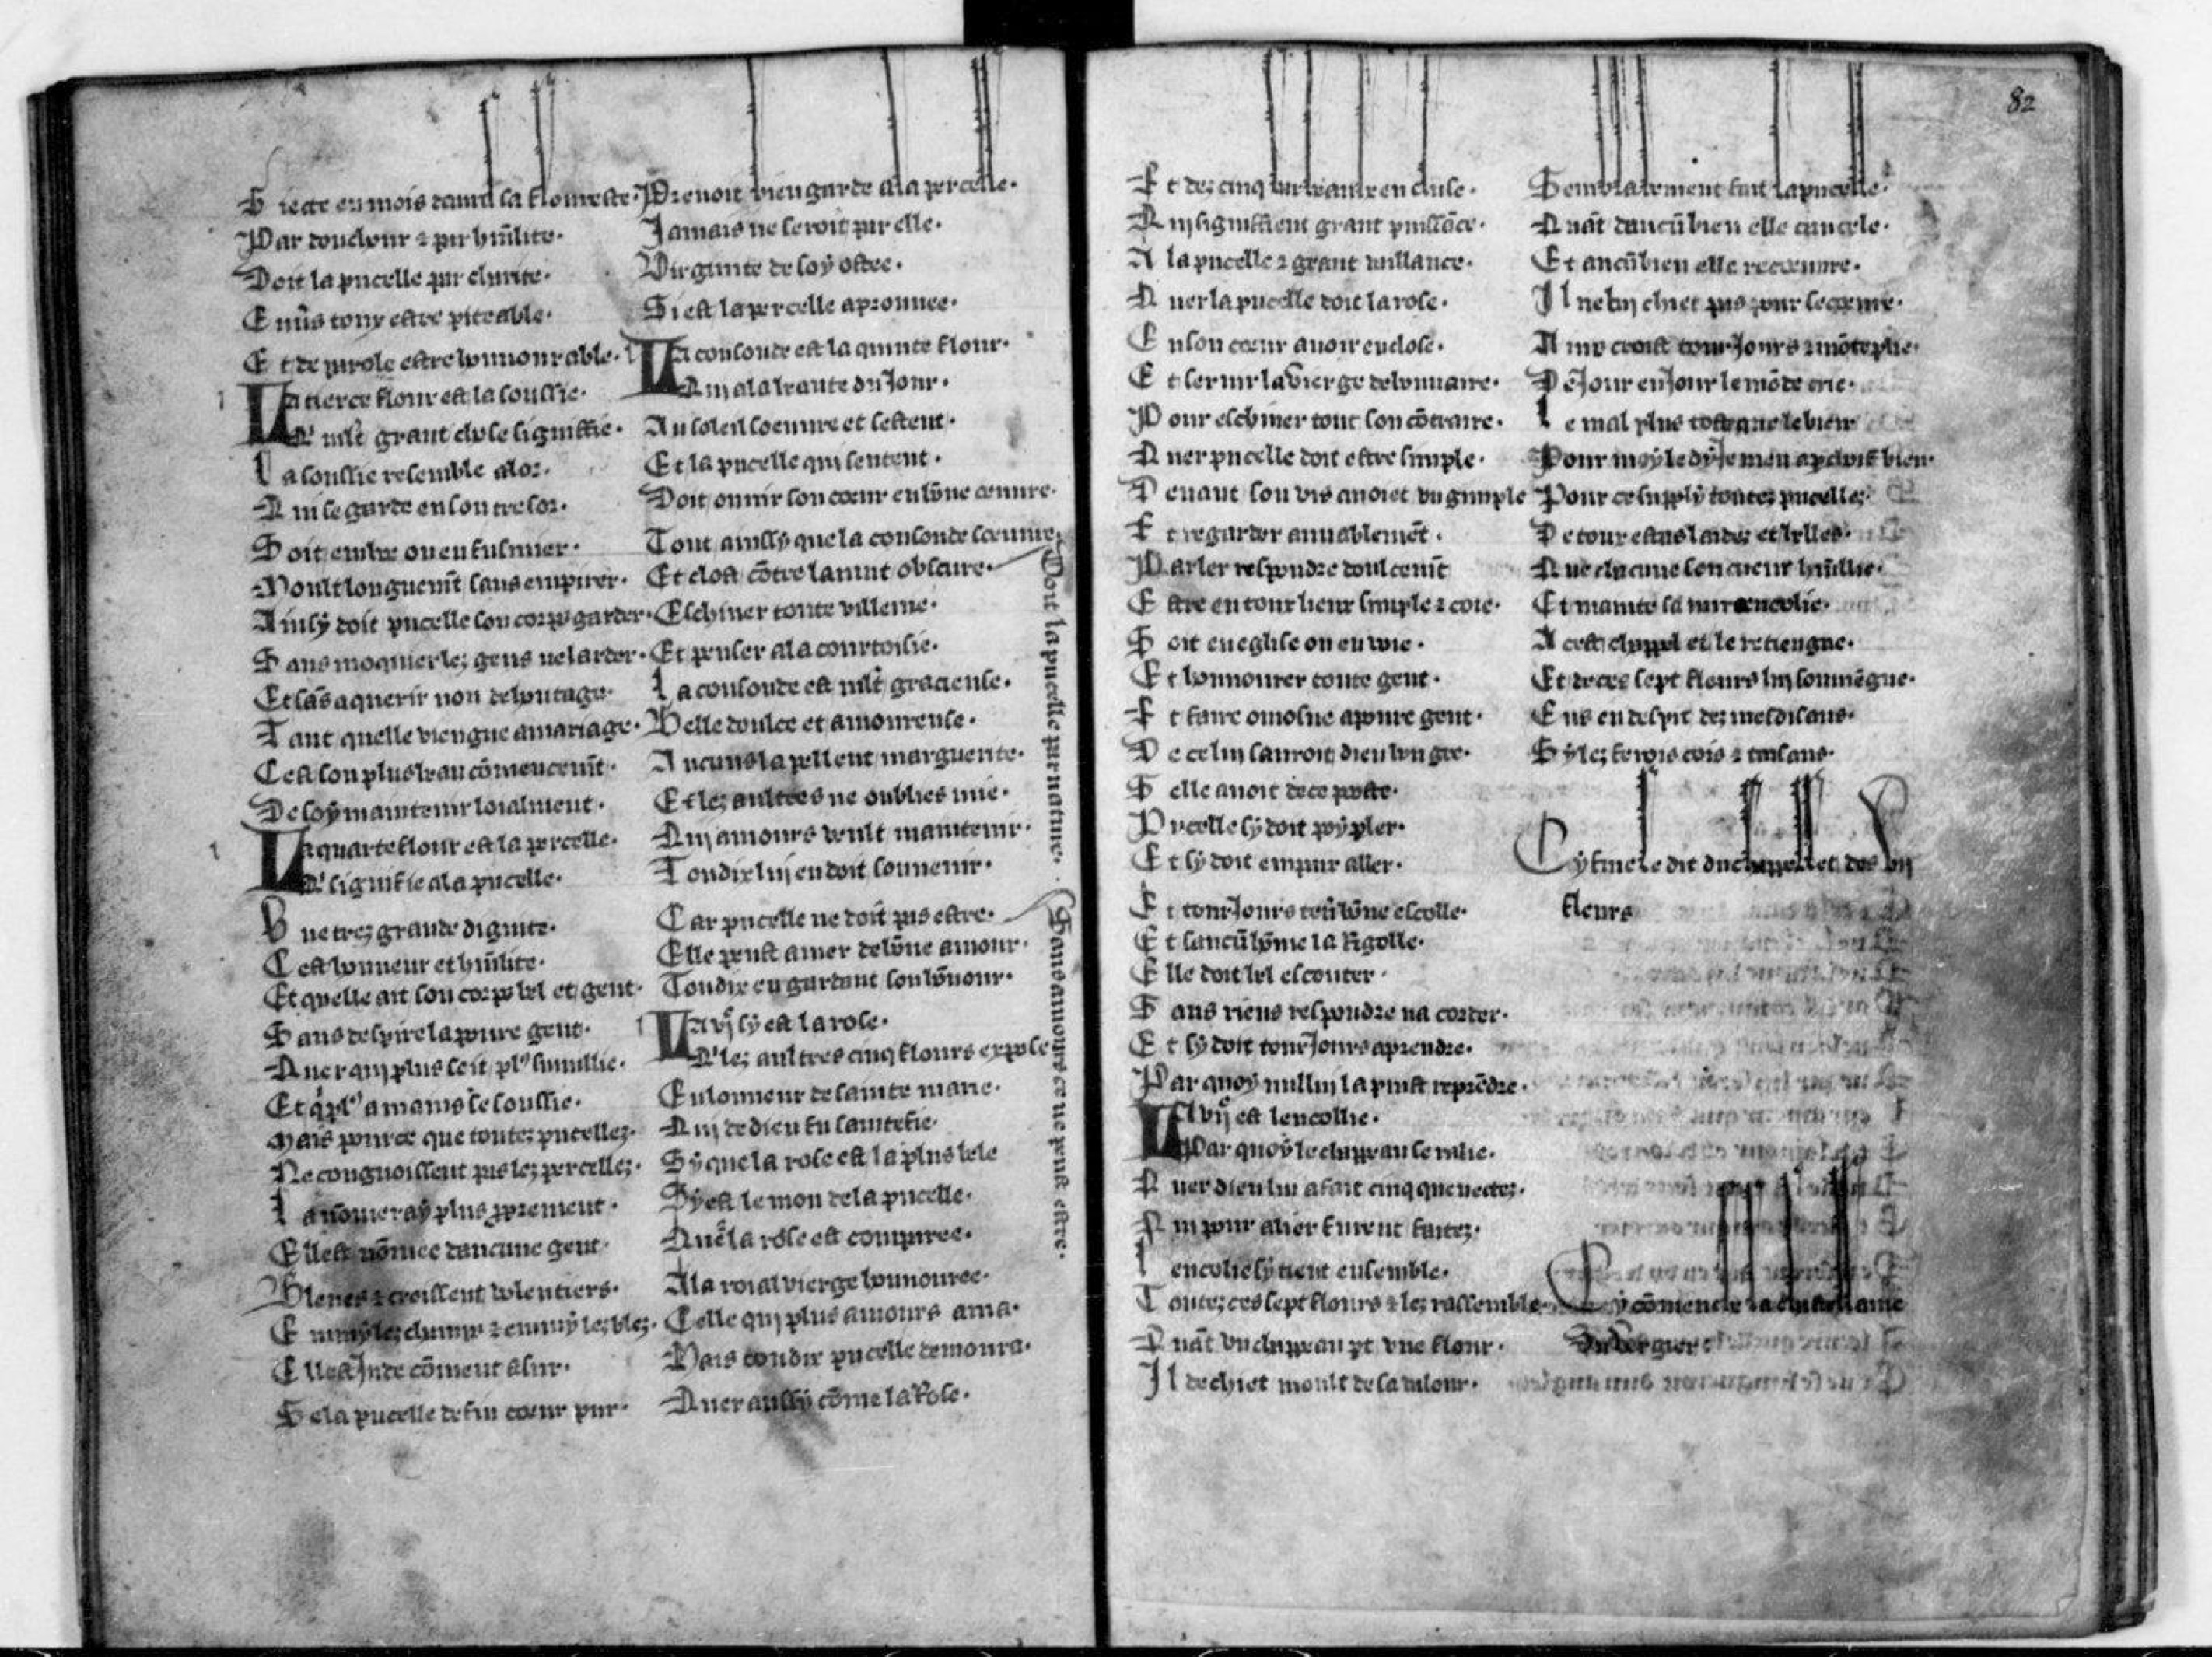 Par doulcour ⁊ par hũilite.
Doit la pucelle par charite.
Enũs tous estre piteable.
Et de parole estre honnourable.
La tierce flour est la soussie.
Qͥ mlt̃ grant chose signiffie.
La soussie resemble a lor.
Qui se garde en son tresor.
Soit en terre ou en fusmier.
Moult longuemẽt sans empirer.
Ainsy doit pucelle son corps garder.
Sans moquier lez gens ne larder.
Et sãs aquerir non de hontage.
Tant quelle viengne a mariage.
Cest son plus beau cõmencemẽt.
De soy maintenir loialment.
La quarte flour est la percelle.
Qͥ signifie a la pucelle.
Vne trez grande dignite.
Cest honneur et hũilite.
Et quelle ait son corps bel et gent.
Sans despire la poure gent.
Quer qui plus seit plꝰ sumilie.
Et q̃ plꝰ a mains se soussie.
Mais pource que toutez pucellez.
Ne congnoissent pas lez percellez.
La nõmeray plus proprement.
Elle est nõmee daucune gent.
Blenes ⁊ croissent volentiers.
Emmy lez champs ⁊ emmy lez blez.
Elle est Inde cõment asur.
Se la pucelle de fin cœur pur.
Prenoit bien garde a la percelle.
Jamais ne seroit par elle.
Virginite de soy ostee.
Si est la percelle aprouuee.
La consoude est la quinte flour.
Qui a la beaute du Jour.
Au soleil soeuure et sestent.
Et la pucelle qui sentent.
Doit ouurir son cœur en bõne œuure.
Tout ainssy que la consoude sœuure.
Et clost cõtre la nuit obscure.
Doit la pucelle par nature.
Eschiuer toute villenie.
Et penser a la courtoisie.
La consoude est mlt̃ gracieuse.
Belle doulce et amoureuse.
Aucuns lapellent marguerite.
Et lez aultres ne oublies mie.
Qui amours veult maintenir.
Toudix luy en doit souuenir.
Car pucelle ne doit pas estre.
Sans amours ce ne peust estre.
Elle peust amer de bõne amour.
Toudix en gardant son hõnour.
La vjͤ sy est la rose.
Qͥ lez aultres cinq flours expose
En lonneur de sainte marie.
Qui de dieu fu saintefie.
Sy que la rose est la plus bele
Sy est le mon de la pucelle.
Que la rose est comparee.
A la roial vierge honnouree.
Celle qui plus amours ama.
Mais toudix pucelle demoura.
Quer aussy cõme la Rose.
82
Qui signiffient grant puissãce.
A la pucelle ⁊ grant vaillance.
Quer la pucelle doit la rose.
En son cœur auoir enclose.
Et seruir la vierge debonnaire.
Pour eschiuer tout son cõtraire.
Quer pucelle doit estre simple.
Deuant son vis auoiet vng guimple
Et regarder amiablemẽt.
Parler respondre doulcemẽt
Estre en tour lieux simple ⁊ coie.
Soit en eglise ou en voie.
Et honnourer toute gent.
Et faire omosne a poure gent.
De celuy sauroit dieu bon gre.
Selle auoit de ce poste.
Pucelle sy doit poy pler.
Et sy doit em par aller.
Et tourJours tenir bõne escolle.
Et saucũ hõme la Rigolle.
Elle doit bel escouter.
Sans riens respondre na corder.
Et sy doit tourJours aprendre.
Par quoy nulluy la puist reprẽdre.
La vijͤ est lencollie.
Par quoy le chappeau se ralie.
Quer dieu lui a fait cinq queuectez.
Qui pour alier furent faitez.
Lencolie sy tient ensemble.
Toutez ces sept flours ⁊ lez rassemble.
Quãt vn chappeau pt vne flour.
Il dechiet moult de sa valour.
Semblablement fait la pucelle.
Quãt daucũ bien elle cancele.
Et aucũ bien elle recœuure.
Il ne luy chiet pas pour le cœure.
Ains croist tourJours ⁊ mõteplie.
De Jour en Jour le mõde crie.
Le mal plus tost que le bien
Pour moy le dy Je men apchoif bien.
Pour ce supply toutez pucellez
De tour estas laidez et belles.
Que chacune son cueur hũilie.
Et mainte sa merencolie.
A cest chappel et le retiengne.
Et de ces sept flours luy souuiẽgne.
Ens en despit dez mesdisans.
Sy lez ferois cois ⁊ taisans.
Cy fine le dit du chappellet des vij
fleurs
Cy cõmence la chastellaine
du vergier